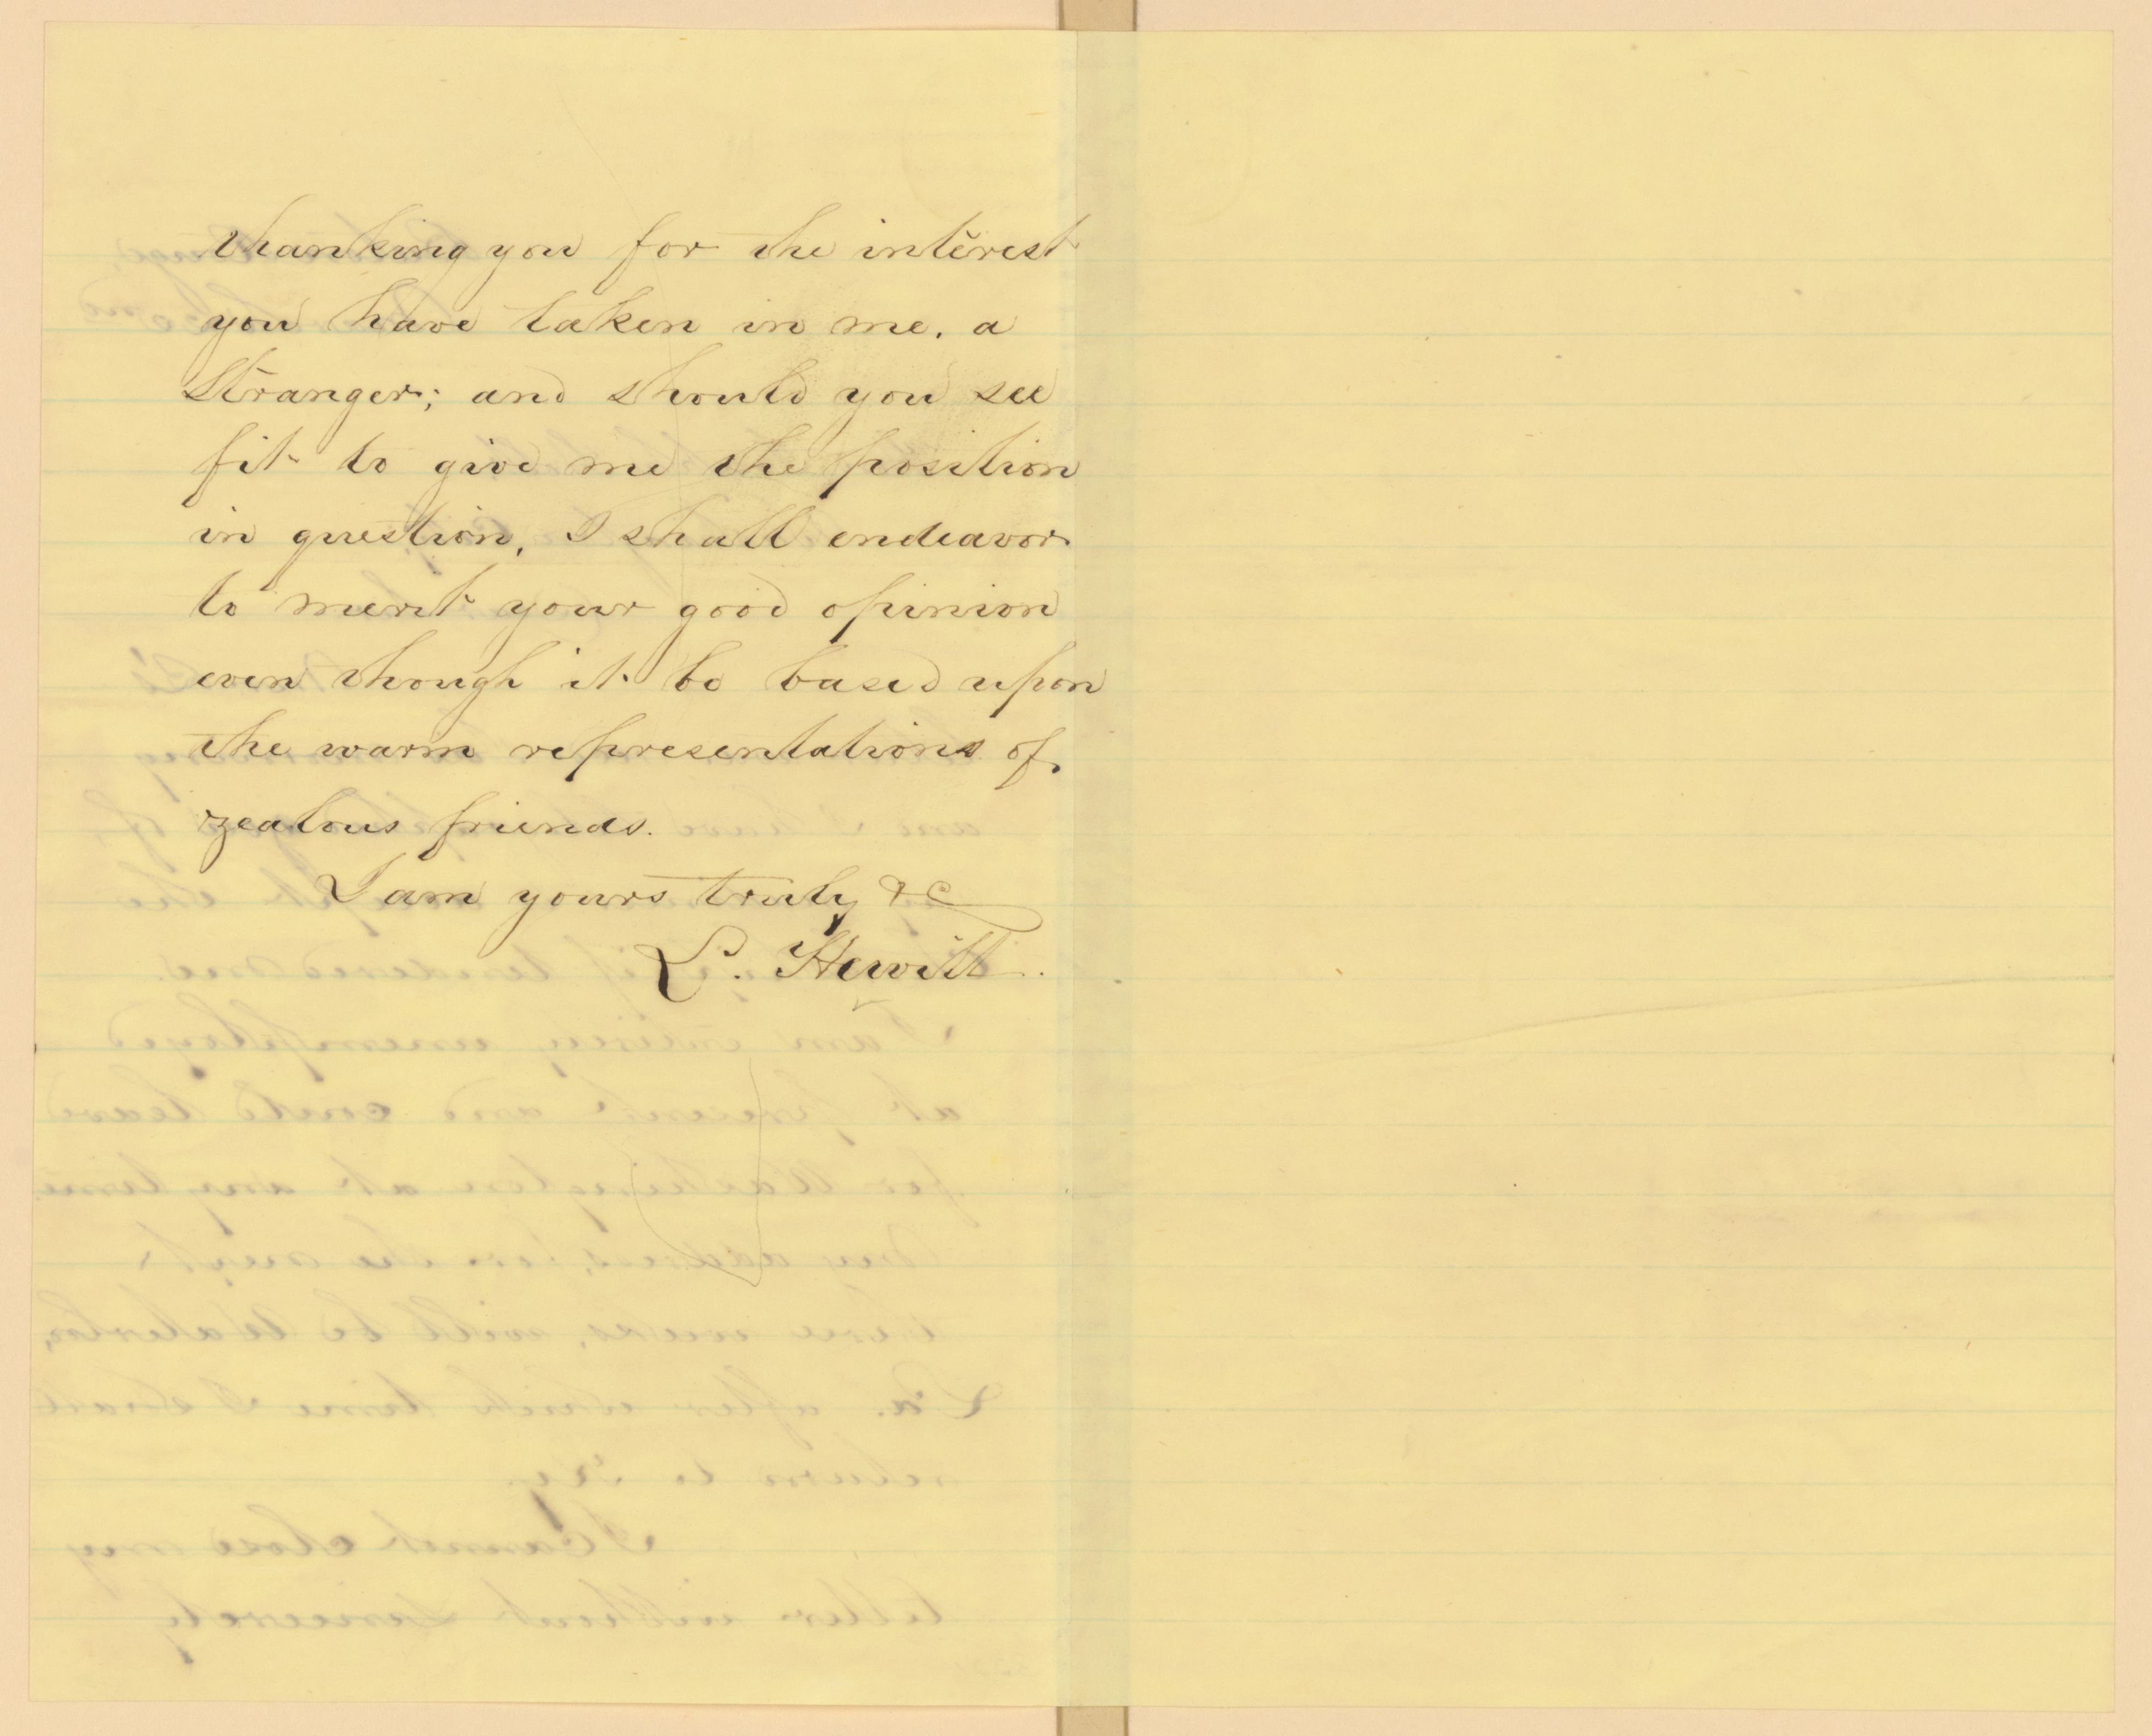 thanking you for the interest
you have taken in me. a
Stranger; and should you see
fit to give me the position
in question, I shall endeavor
to merit your good opinion
even though it be based upon
the warm representations of
zealous friends.
I am yours truly &c
L. Hewitt.